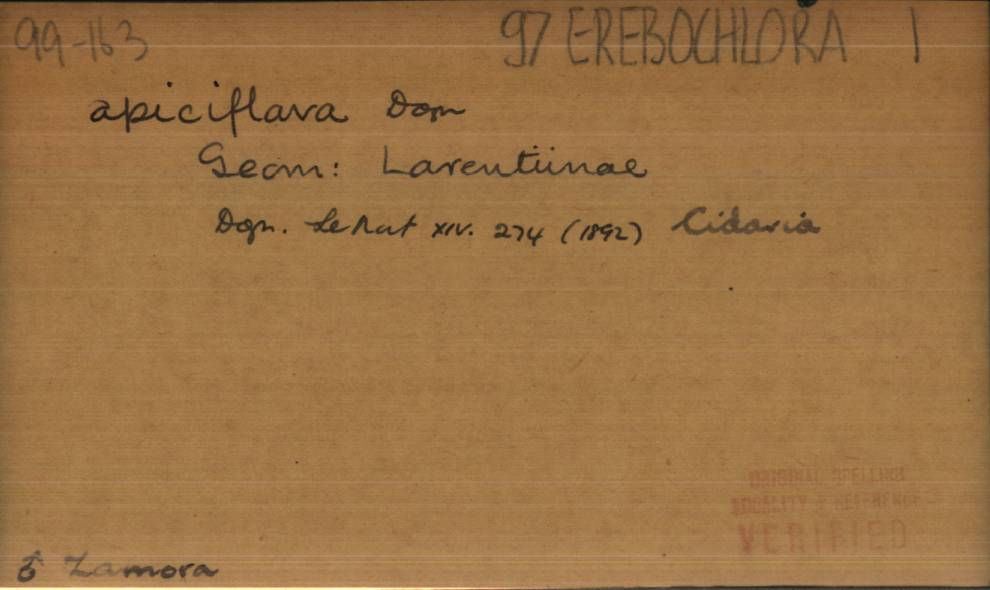 99-163 97 EREBOCHLORA 1
apiciflava Dogn
Geom: Larentiinae
Dgn. Le Nat XIV. 274 (1892) Cidaria
ORIGINAL SPELLING
LOCALITY & REFERENCE
VERIFIED
♂ Zamora